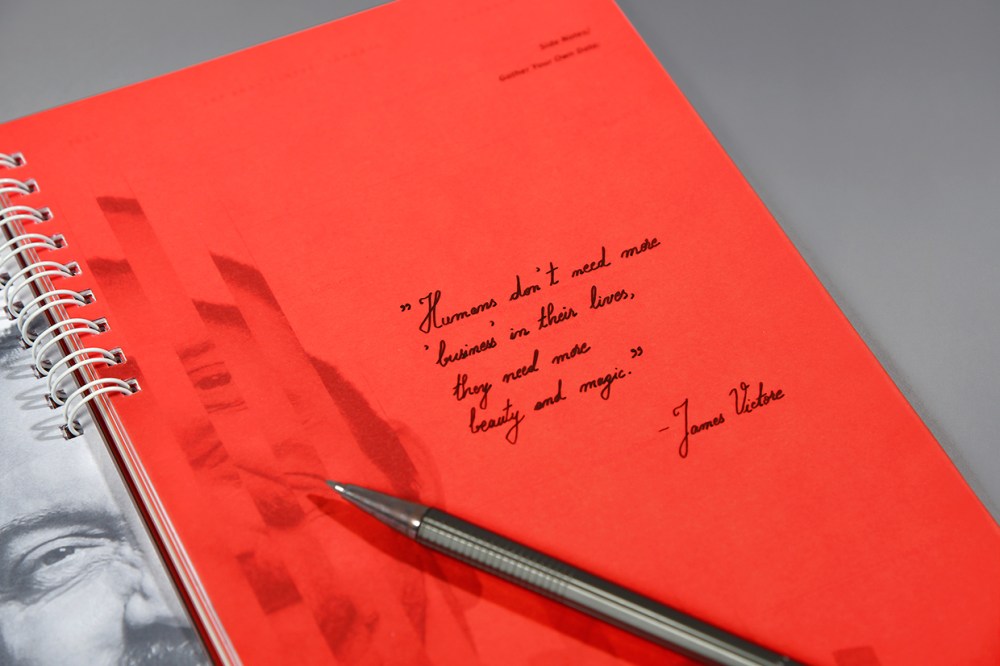 Side Notes/
Gather Your Own Data.
"Humans don't need more
'business' in their lives,
they need more
beauty and magic."
- James Victore